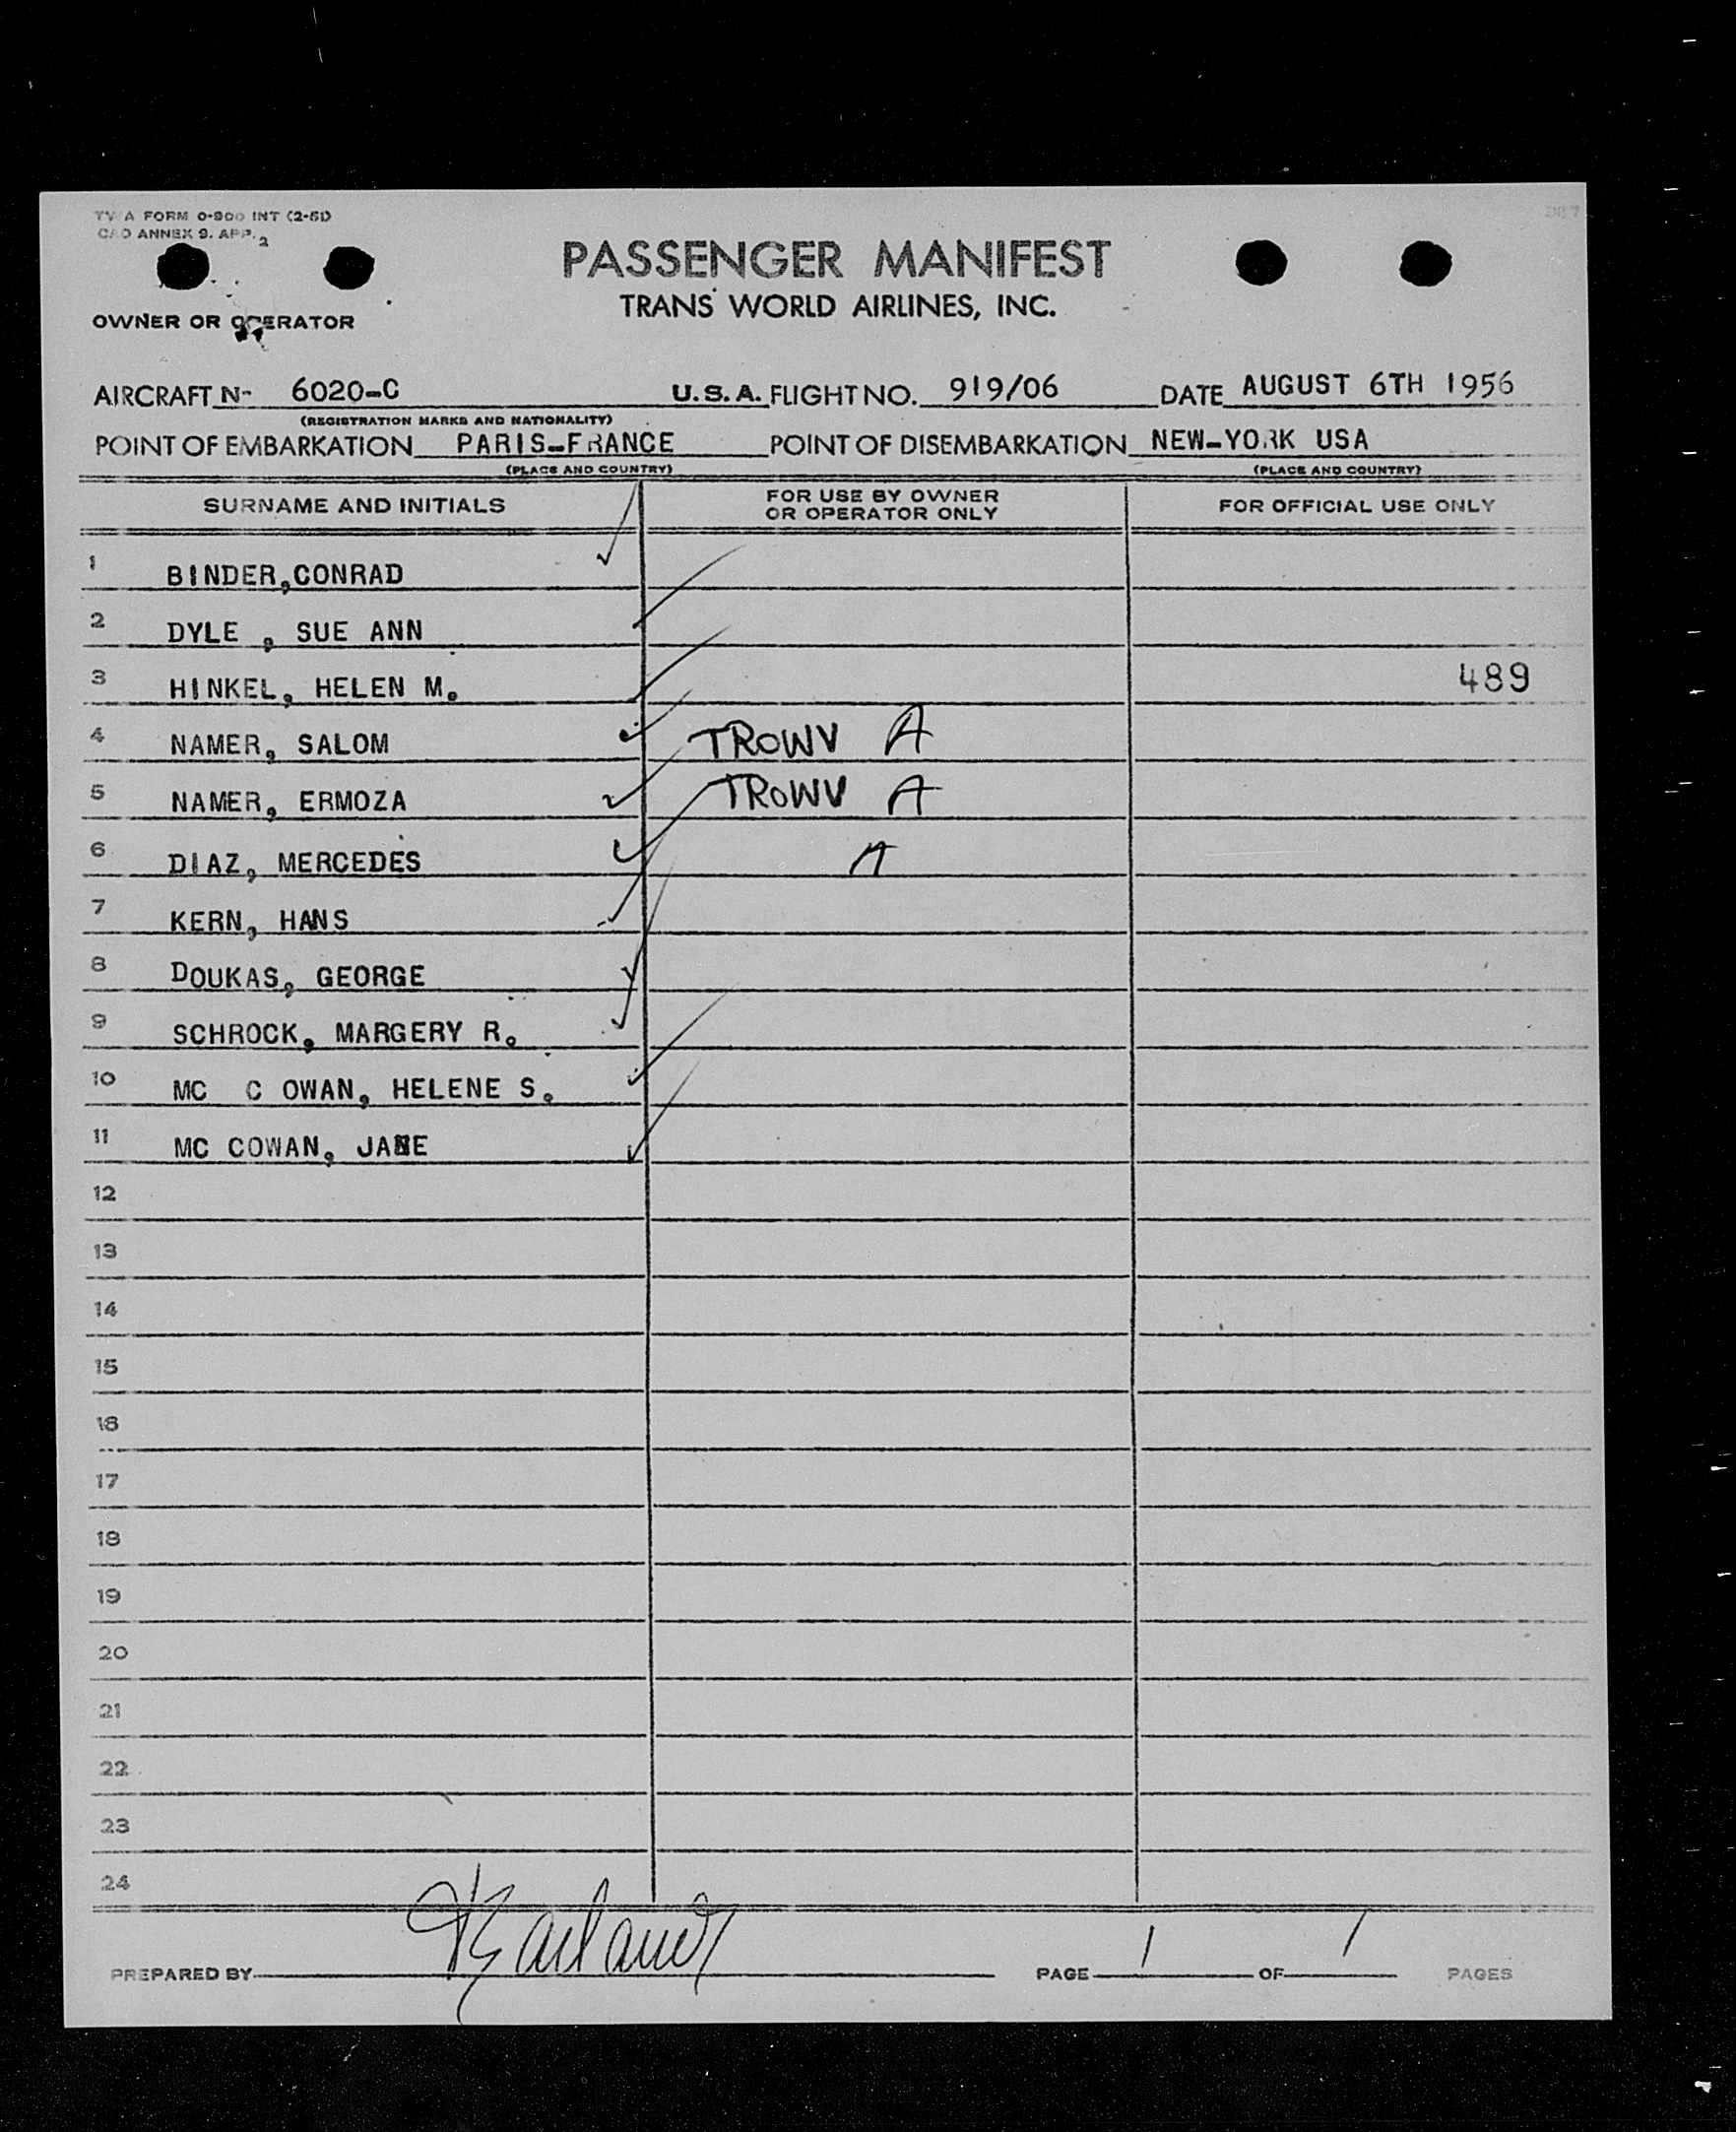 TWA FORM 0-900 INT (2-51)
CAO ANNEX 9. APP. 2
PASSENGER MANIFEST
TRANS WORLD AIRLINES, INC.
OWNER OR OPERATOR
AIRCRAFT N- 6020-C U.S.A. FLIGHT NO. 919/06 DATE AUGUST 6TH 1956
(REGISTRATION MARKS AND NATIONALITY)
POINT OF EMBARKATION PARIS-FRANCE POINT OF DISEMBARKATION NEW-YORK USA
(PLACE AND COUNTRY) (PLACE AND COUNTRY)
SURNAME AND INITIALS FOR USE BY OWNER OR OPERATOR ONLY FOR OFFICIAL USE ONLY
1 BINDER,CONRAD
2 DYLE , SUE ANN
3 HINKEL, HELEN M. 489
4 NAMER, SALOM TROWV A
5 NAMER, ERMOZA TROWV A
6 DIAZ, MERCEDES A
7 KERN, HANS
8 DOUKAS, GEORGE
9 SCHROCK, MARGERY R.
10 MC C OWAN, HELENE S.
11 MC COWAN, JANE
12
13
14
15
16
17
18
19
20
21
22
23
24
PREPARED BY PAGE 1 OF 1 PAGES